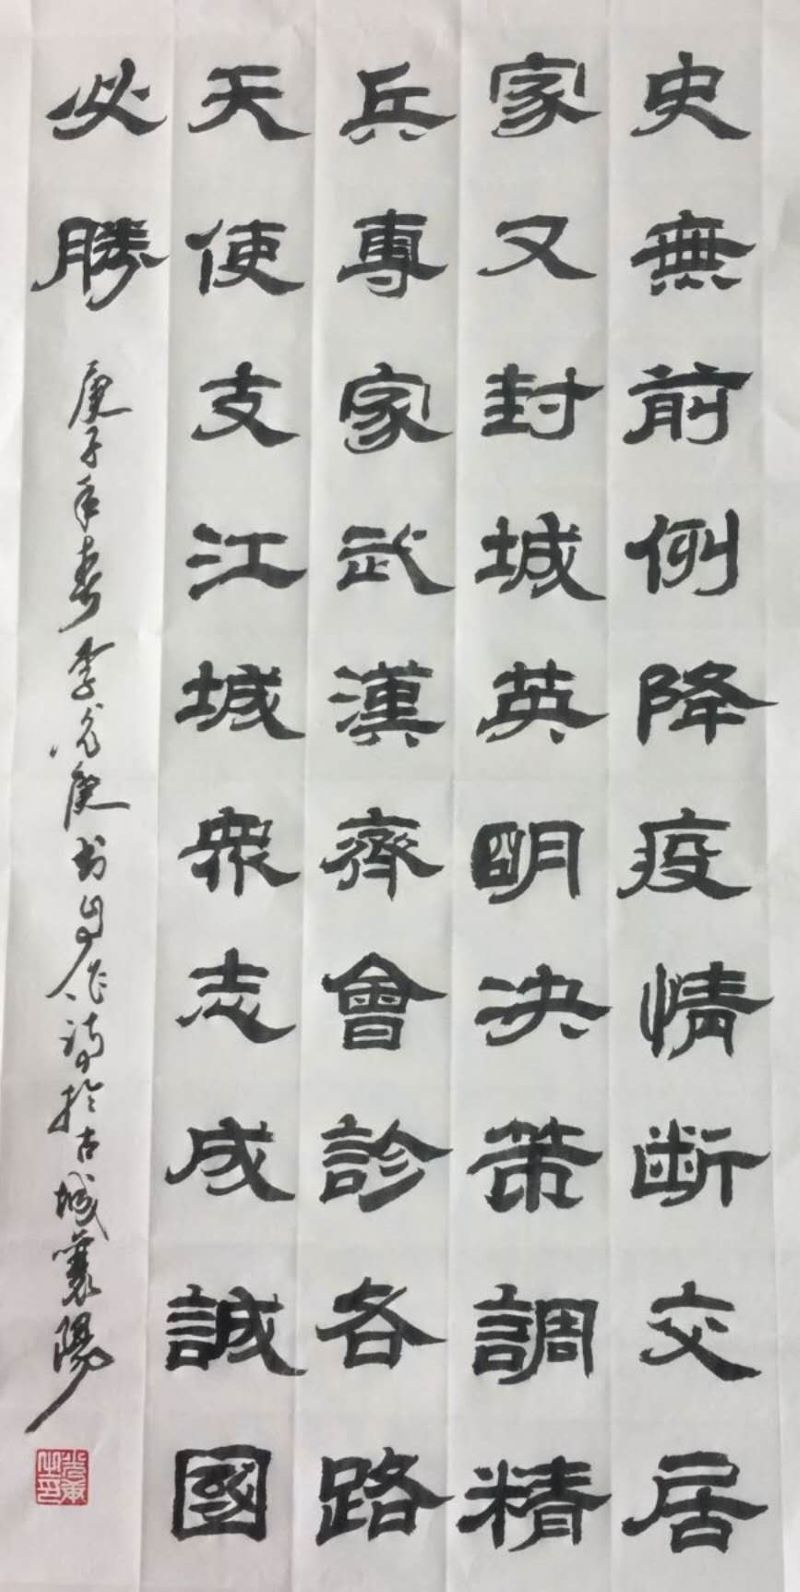 史無前例降疫情斷交居
家又封城英明决策調精
兵專家武漢齊會診各路
天使支江城衆志成誠國
必勝
庚子年春李光庚书自作詩於古城襄陽